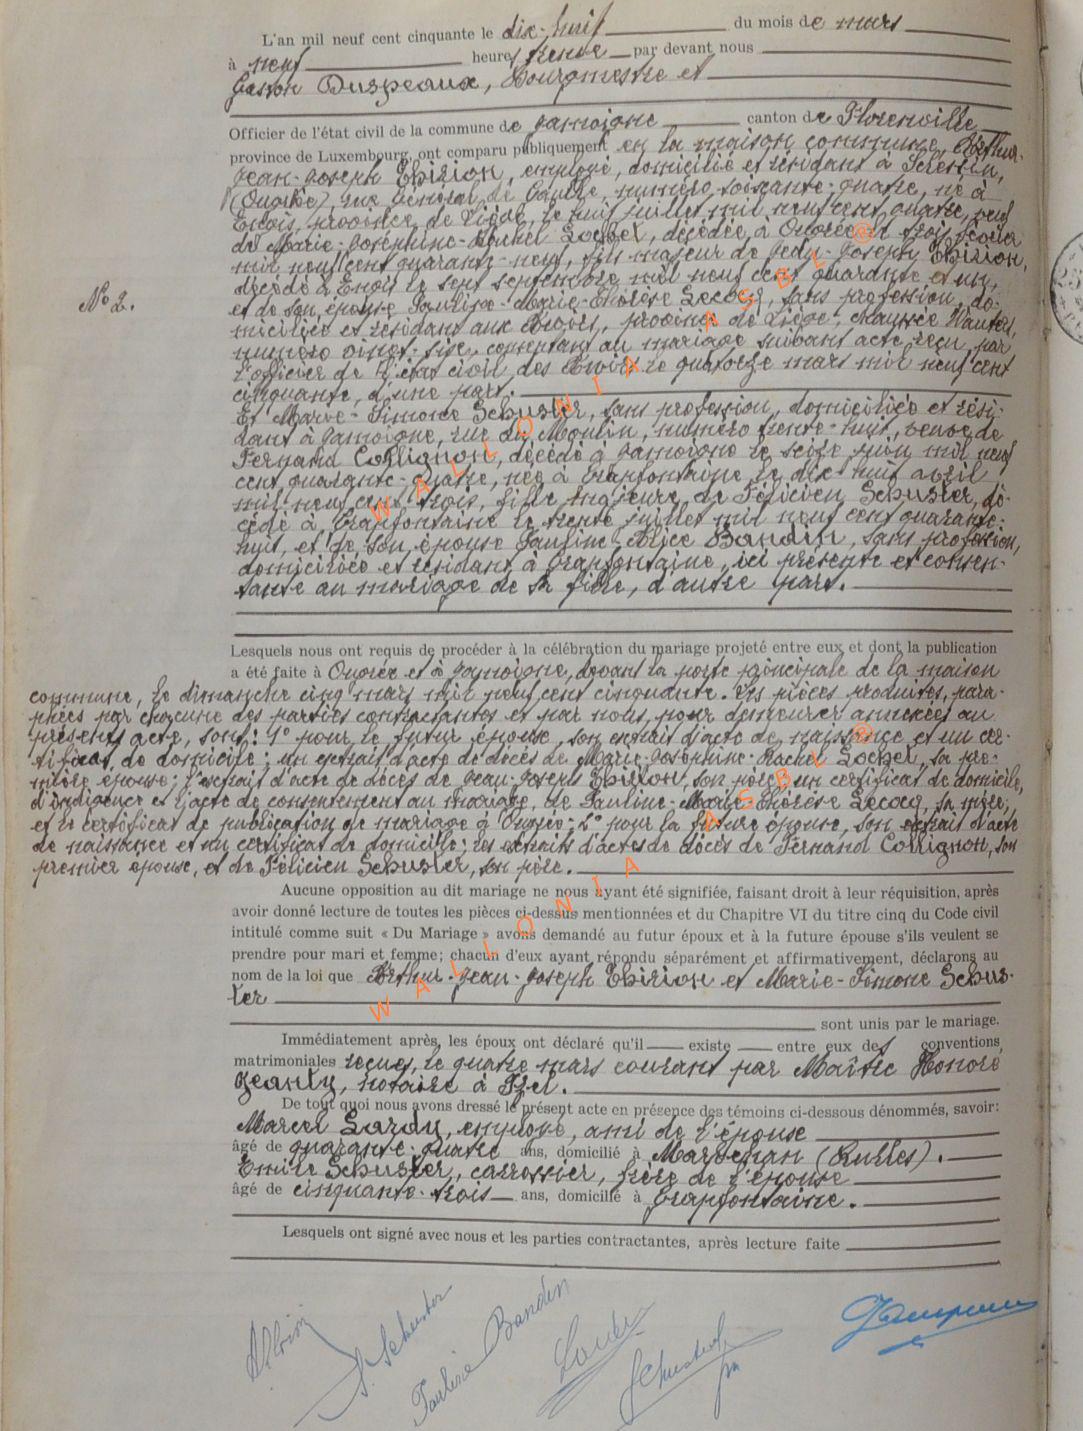 L'an mil neuf cent cinquante le dix-huit du mois de mars
à neuf heures trente par devant nous
Gaston Duspeaux, Bourgmestre et
Officier de l'état civil de la commune de Jamoigne canton de Florenville
province de Luxembourg, ont comparu publiquement en la maison commune, Arthur-
Jean-Joseph Thirion, employé, domicilié et résidant à Sclessin,
(Ougrée), rue Général de Gaulle, numéro soixante-quatre, né à
province de Liège, le huit juillet mil neuf cent quatre, veuf
de Marie-Joséphine-Rachel Lochet, décédée à Ougrée le trois février
mil neuf cent quarante-neuf, fils majeur de Jean-Joseph Thirion,
décédé à le sept septembre mil neuf cent quarante et un,
et de son épouse Pauline-Marie-Thérèse Lecocq, sans profession, do-
miciliée et résidant aux Awirs, province de Liège, chaussée Wauters,
numéro vingt-six, consentant au mariage suivant acte reçu par
l'officier de l'état civil des Awirs le quatorze mars mil neuf cent
cinquante, d'une part.
N° 2.
Et Marie-Simone Schuster, sans profession, domiciliée et rési-
dant à Jamoigne, rue du Moulin, numéro trente-huit, veuve de
Fernand Collignon, décédé à Jamoigne le seize juin mil neuf
cent quarante-quatre, née à Grapfontaine le dix-huit avril
mil neuf cent trois, fille majeure de Félicien Schuster, dé-
cédé à Grapfontaine le trente juillet mil neuf cent quarante-
huit, et de son épouse Pauline-Alice Bandin, sans profession,
domiciliée et résidant à Grapfontaine, ici présente et consen-
tante au mariage de sa fille, d'autre part.
Lesquels nous ont requis de procéder à la célébration du mariage projeté entre eux et dont la publication
a été faite à Ougrée et à Jamoigne, devant la porte principale de la maison
commune, le dimanche cinq mars mil neuf cent cinquante. Les pièces produites, para-
phées par chacune des parties contractantes et par nous, pour demeurer annexées au
présent acte, sont: 1° pour le futur époux, son extrait d'acte de naissance et un cer-
tificat de domicile; un extrait d'acte de décès de Marie-Joséphine-Rachel Lochet, sa pre-
mière épouse; l'extrait d'acte de décès de Jean-Joseph Thirion, son père; un certificat de domicile,
d'indigence et l'acte de consentement au mariage, de Pauline-Marie-Thérèse Lecocq, sa mère;
et le certificat de publication de mariage à Ougrée; 2° pour la future épouse, son extrait d'acte
de naissance et un certificat de domicile; les extraits d'actes de décès de Fernand Collignon, son
premier époux, et de Félicien Schuster, son père.
Aucune opposition au dit mariage ne nous ayant été signifiée, faisant droit à leur réquisition, après
avoir donné lecture de toutes les pièces ci-dessus mentionnées et du Chapitre VI du titre cinq du Code civil
intitulé comme suit « Du Mariage » avons demandé au futur époux et à la future épouse s'ils veulent se
prendre pour mari et femme; chacun d'eux ayant répondu séparément et affirmativement, déclarons au
nom de la loi que Arthur-Jean-Joseph Thirion et Marie-Simone Schus-
ter
sont unis par le mariage.
Immédiatement après, les époux ont déclaré qu'il existe entre eux des conventions
matrimoniales reçues, le quatre mars courant par Maître Honoré
Jeanty, notaire à Izel.
De tout quoi nous avons dressé le présent acte en présence des témoins ci-dessous dénommés, savoir:
Marcel Lardu, employé, ami de l'épouse
âgé de quarante-quatre ans, domicilié à Marbehan (Rulles).
Émile Schuster, carrossier, frère de l'épouse
âgé de cinquante-trois ans, domicilié à Grapfontaine.
Lesquels ont signé avec nous et les parties contractantes, après lecture faite
S. Schuster
Pauline Bandin
WALLONIA ASBL @
WALLONIA ASBL @